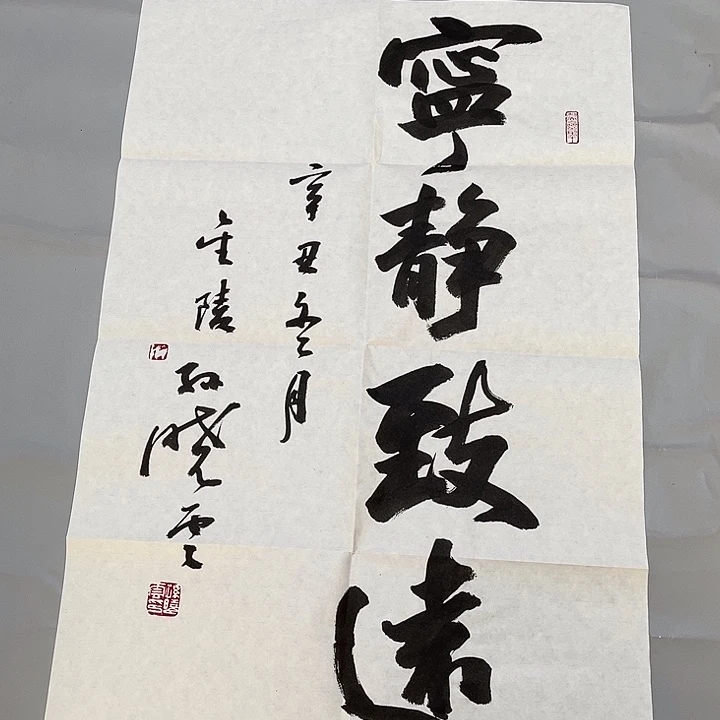 寧靜致遠
辛丑冬月
金陵孙晓云